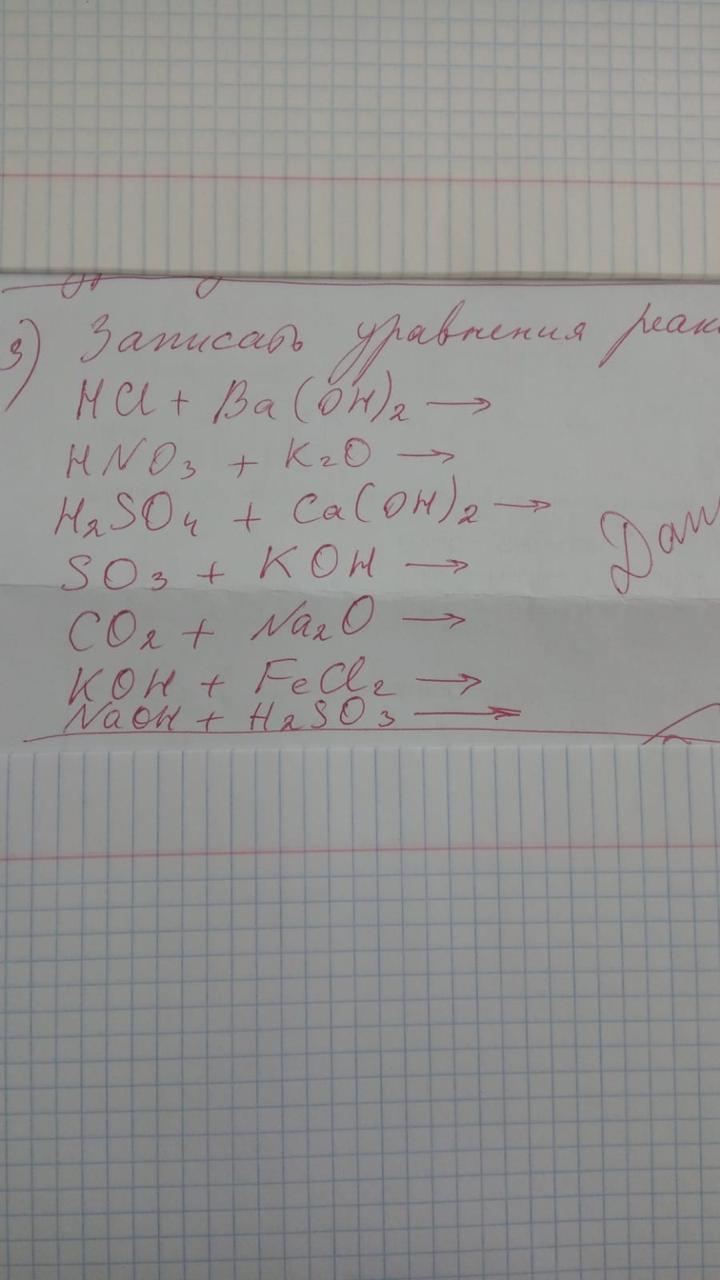 3) Записать уравнения реак
HCl + Ba(OH)₂ →
HNO₃ + K₂O →
H₂SO₄ + Ca(OH)₂ →
Дан
SO₃ + KOH →
CO₂ + Na₂O →
KOH + FeCl₂ →
NaOH + H₂SO₃ →